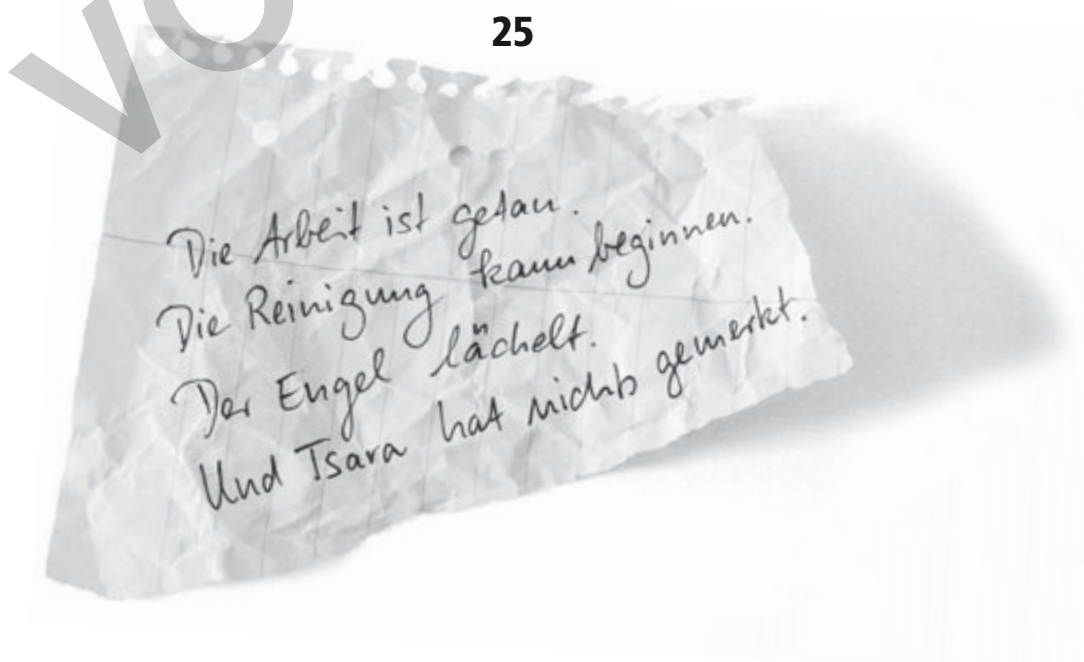 25
Die Arbeit ist getan.
Die Reinigung kann beginnen.
Der Engel lächelt.
Und Tsara hat nichts gemerkt.